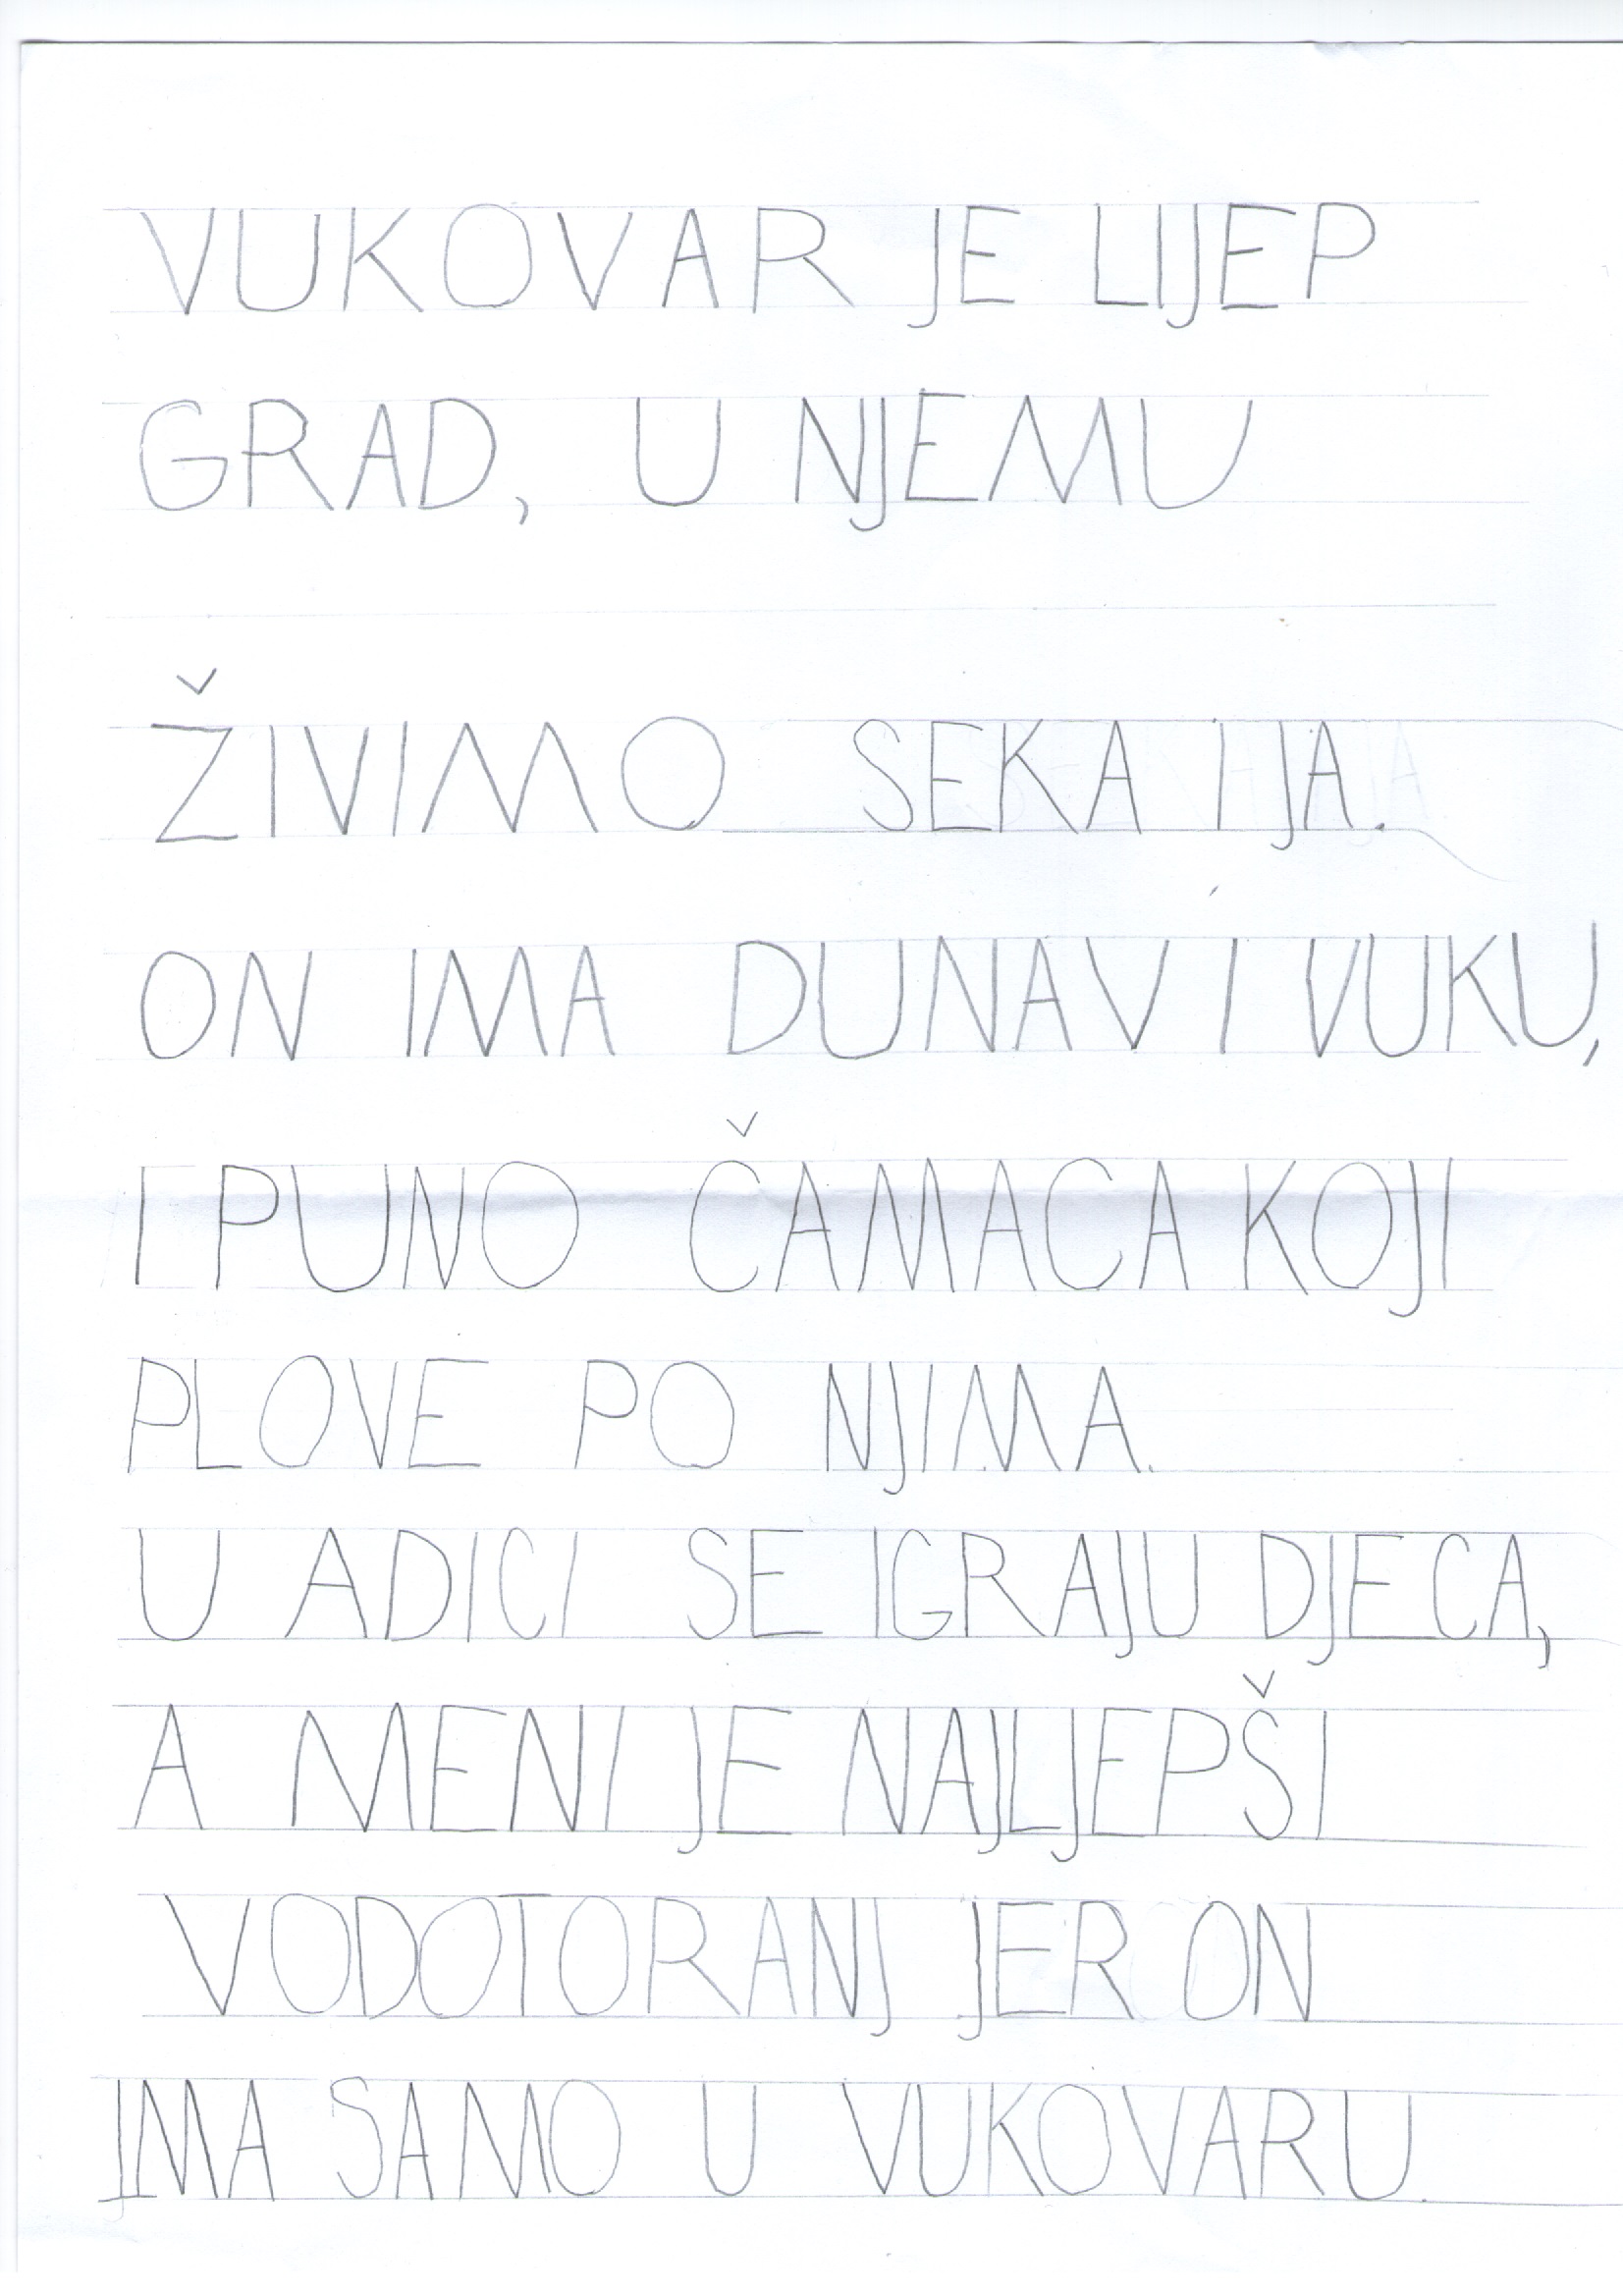 VUKOVAR JE LIJEP
GRAD, U NJEMU
ŽIVIMO SEKA I JA.
ON IMA DUNAV I VUKU,
I PUNO ČAMACA KOJI
PLOVE PO NJIMA.
U ADICI SE IGRAJU DJECA,
A MENI JE NAJLJEPŠI
VODOTORANJ JER ON
IMA SAMO U VUKOVARU.